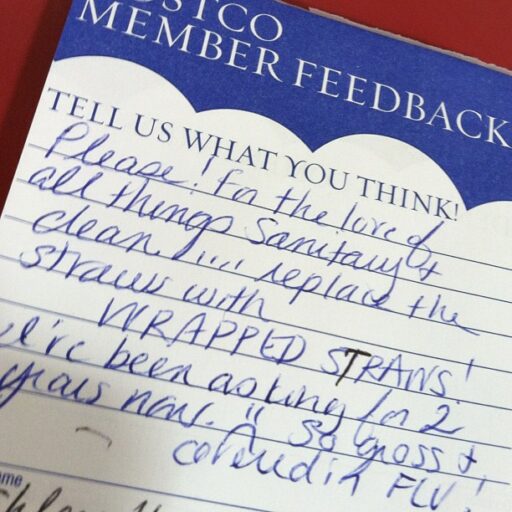 OSTCO
MEMBER FEEDBACK
TELL US WHAT YOU THINK!
Please! for the love of
all things sanitary &
clean!!!!! replace the
straws with
WRAPPED STRAWS!
I've been asking for 2
years now. !! So gross &
covered in FLU!
ame